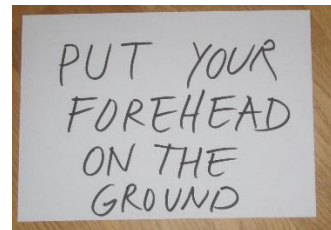 PUT YOUR
FOREHEAD
ON THE
GROUND